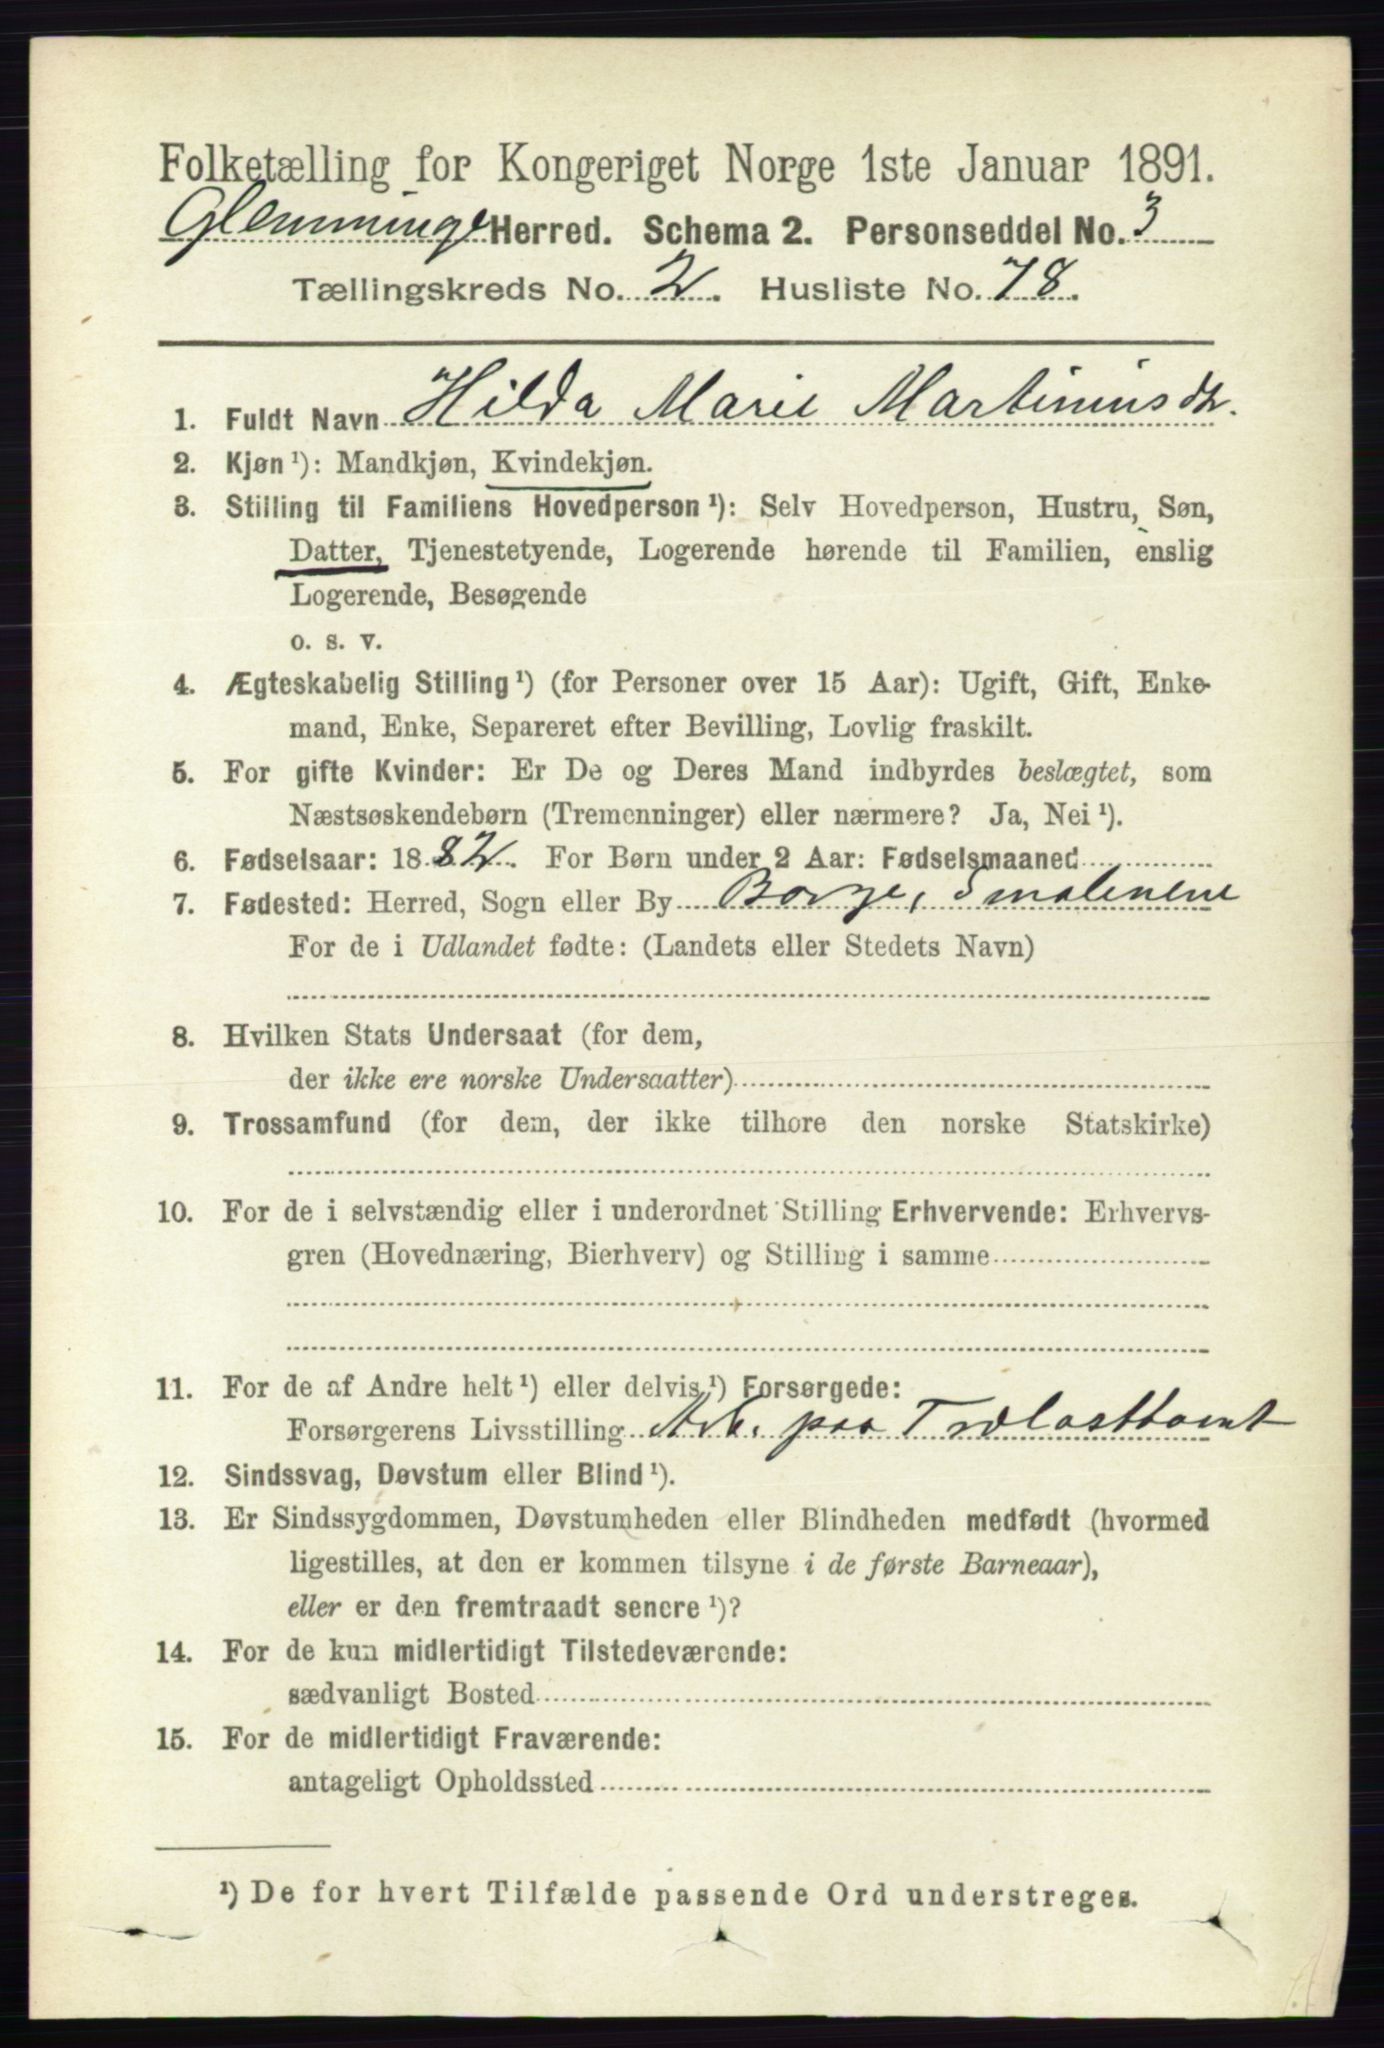 Folketælling for Kongeriget Norge 1ste Januar 1891.
Glemminge Herred. Schema 2. Personseddel No. 3
Tællingskreds No. 2. Husliste No. 78.
1. Fuldt Navn Hilda Marie Martiniusdtr.
2. Kjøn ¹): Mandkjøn, Kvindekjøn.
3. Stilling til Familiens Hovedperson ¹): Selv Hovedperson, Hustru, Søn,
Datter, Tjenestetyende, Logerende hørende til Familien, enslig
Logerende, Besøgende
o. s. v.
4. Ægteskabelig Stilling ¹) (for Personer over 15 Aar): Ugift, Gift, Enke-
mand, Enke, Separeret efter Bevilling, Lovlig fraskilt.
5. For gifte Kvinder: Er De og Deres Mand indbyrdes beslægtet, som
Næstsøskendebørn (Tremenninger) eller nærmere? Ja, Nei ¹).
6. Fødselsaar: 1882. For Børn under 2 Aar: Fødselsmaaned
7. Fødested: Herred, Sogn eller By Borge, Smalenene
For de i Udlandet fødte: (Landets eller Stedets Navn)
8. Hvilken Stats Undersaat (for dem,
der ikke ere norske Undersaatter)
9. Trossamfund (for dem, der ikke tilhøre den norske Statskirke)
10. For de i selvstændig eller i underordnet Stilling Erhvervende: Erhvervs-
gren (Hovednæring, Bierhverv) og Stilling i samme
11. For de af Andre helt ¹) eller delvis ¹) Forsørgede:
Forsørgerens Livsstilling Arb. paa Trælasttomt
12. Sindssvag, Døvstum eller Blind ¹).
13. Er Sindssygdommen, Døvstumheden eller Blindheden medfødt (hvormed
ligestilles, at den er kommen tilsyne i de første Barneaar),
eller er den fremtraadt senere ¹)?
14. For de kun midlertidigt Tilstedeværende:
sædvanligt Bosted
15. For de midlertidigt Fraværende:
antageligt Opholdssted
¹) De for hvert Tilfælde passende Ord understreges.